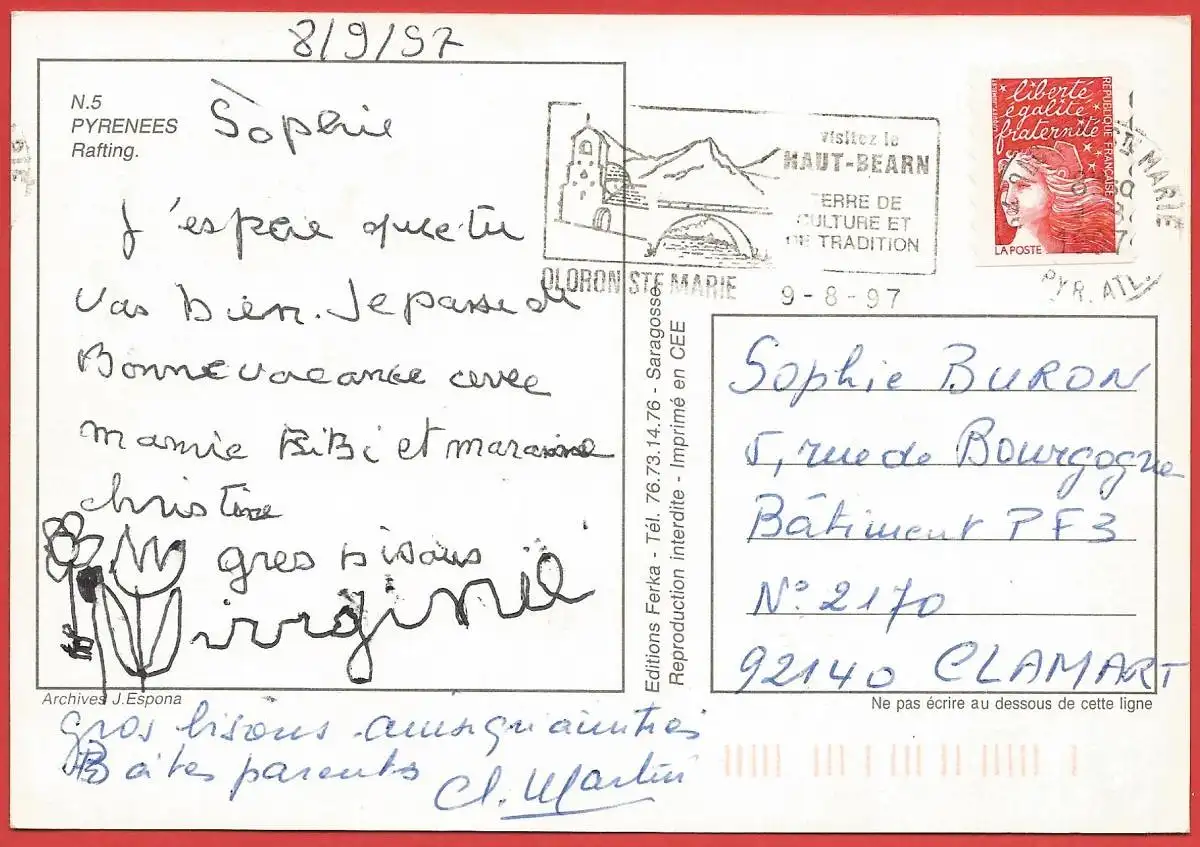 8/9/97
N.5
PYRENEES
Rafting.
Sophie
J'espère que tu
vas bien. Je passe de
Bonne vacance avec
mamie BiBi et maraine
christine
gros bisous
Virginie
Archives J.Espona
gros bisous ainsi qu'aintrei
B à tes parents
Cl. Martin
Editions Ferka - Tél. 76.73.14.76 - Saragosse
Reproduction interdite - Imprimé en CEE
visitez le
HAUT-BEARN
TERRE DE
CULTURE ET
DE TRADITION
OLORON STE MARIE
9-8-97
liberté
égalité
fraternité
REPUBLIQUE FRANÇAISE
LA POSTE
MARIE
PYR. ATL.
Sophie BURON
5, rue de Bourgogne
Bâtiment PF3
N° 2170
92140 CLAMART
Ne pas écrire au dessous de cette ligne